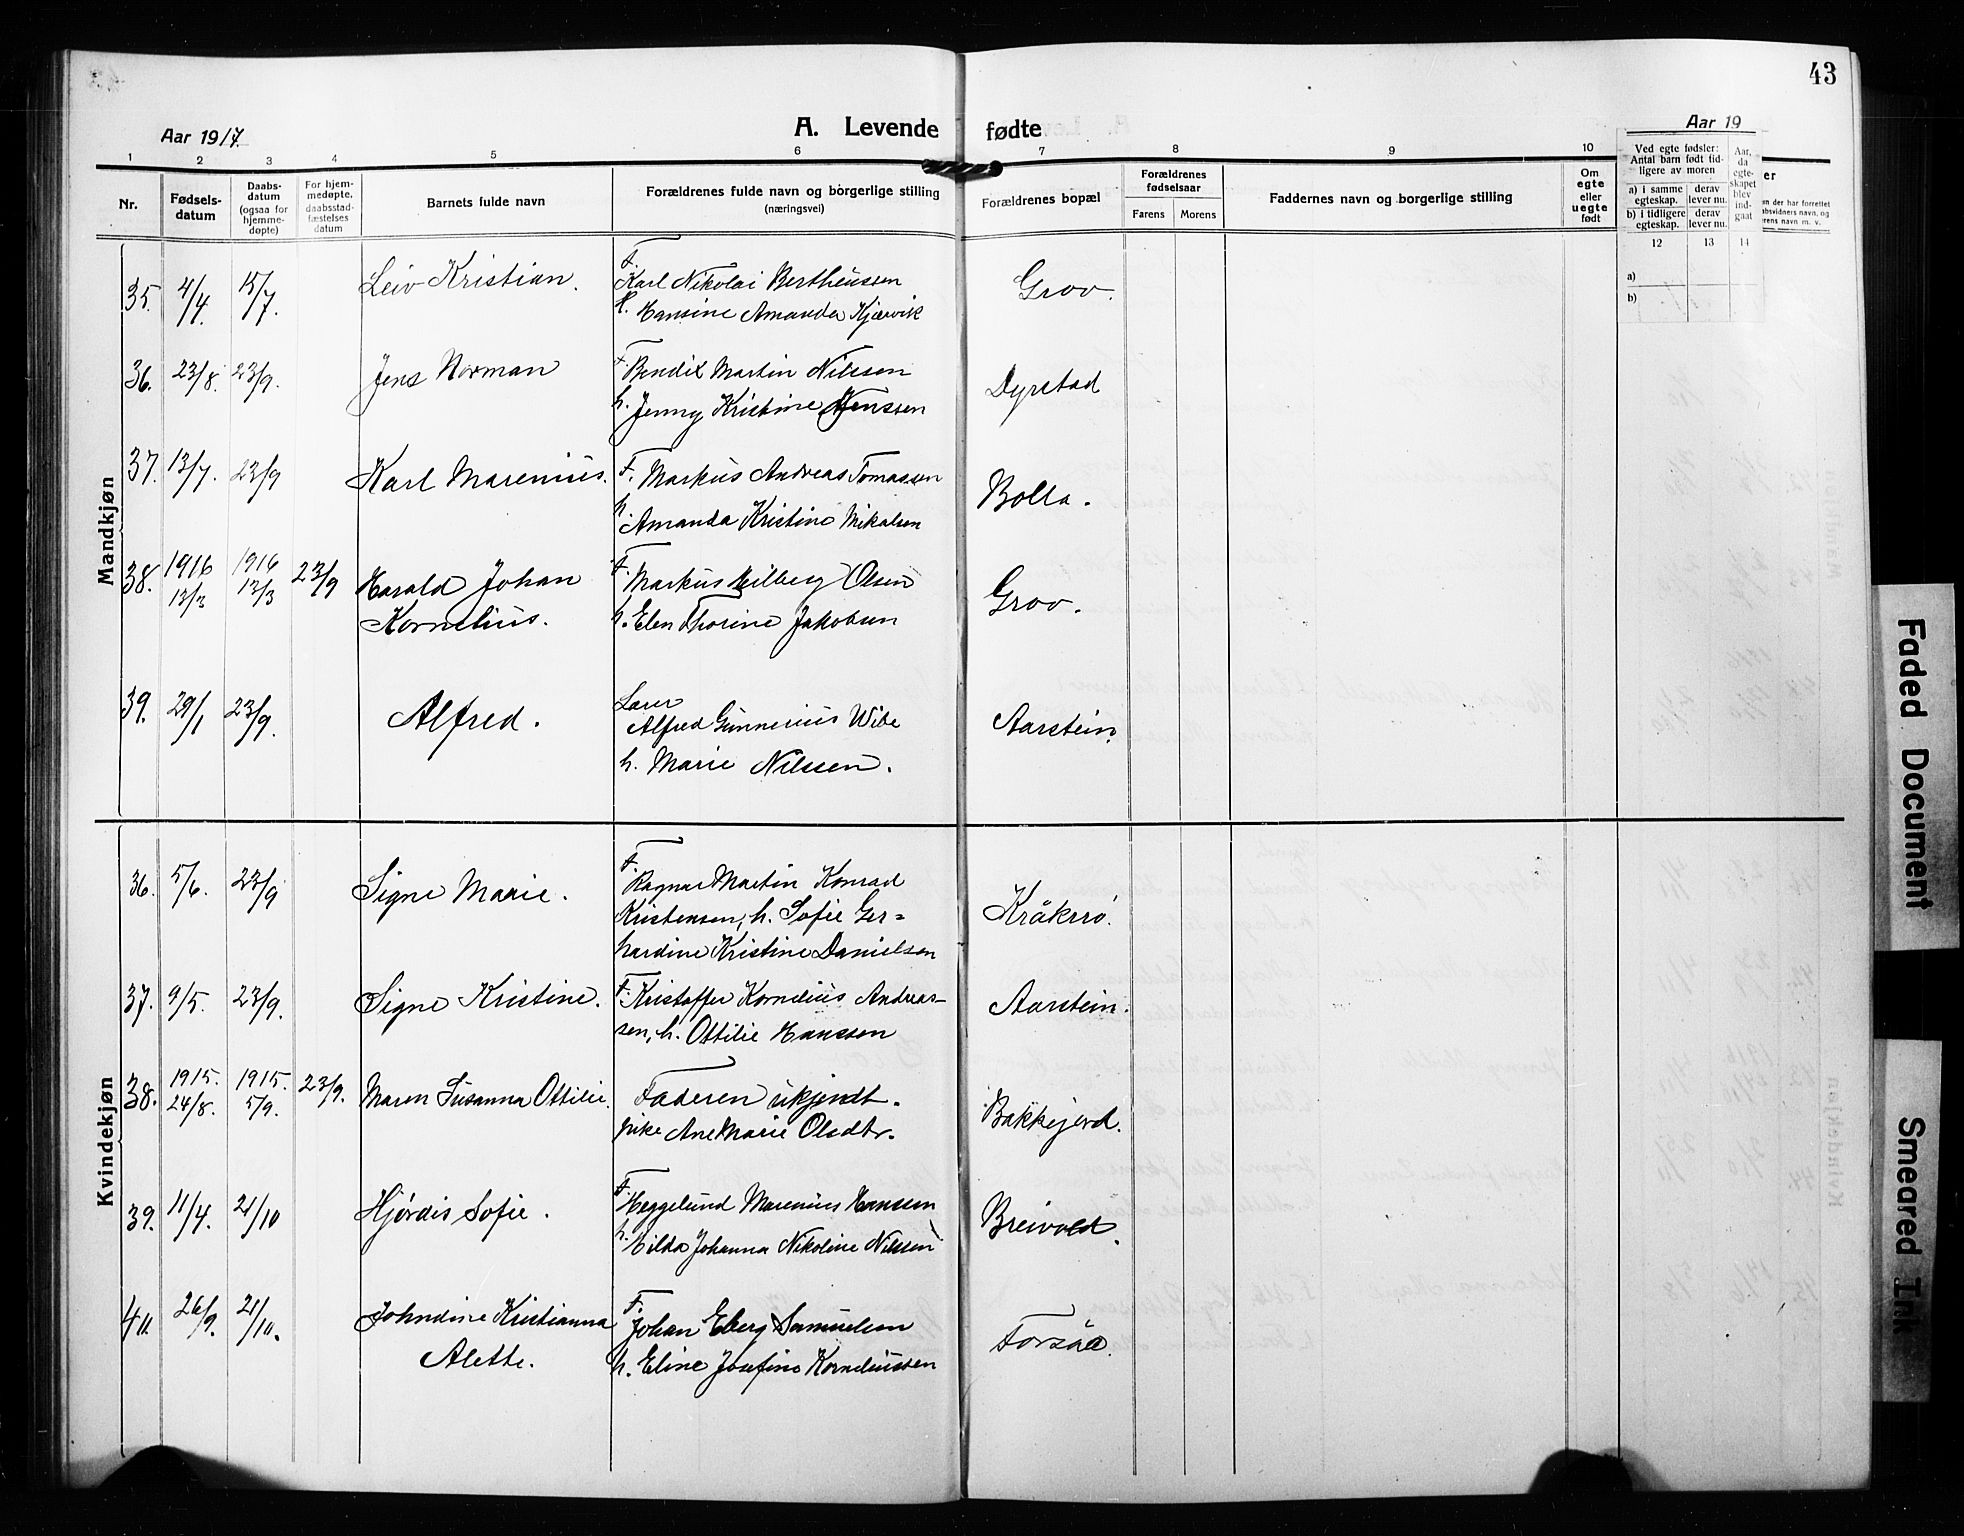 43
Aar 1917.
A. Levende fødte
Aar 19
1 2 3 4 5 6 7 8 9 10
Nr.
Fødsels-
datum
Daabs-
datum
(ogsaa for
hjemme-
døpte)
For hjem-
medøpte,
daabsstad-
fæstelses
datum
Barnets fulde navn
Forældrenes fulde navn og borgerlige stilling
(næringsvei)
Forældrenes bopæl
Forældrenes
fødselsaar
Farens Morens
Faddernes navn og borgerlige stilling
Om
egte
eller
uegte
født
Ved egte fødsler:
Antal barn født tid-
ligere av moren
a) i samme
egteskap.
derav
lever nu.
b) i tidligere
egteskap.
derav
lever nu.
Aar,
da
egte-
skapet
blev
ind-
gaat
12 13 14
a)
b)
Mandkjøn
35. 4/4. 15/7. Leiv Kristian. F. Karl Nikolai Bertheussen Grov.
H. Hansine Amanda Kjærvik
36. 23/8. 23/9. Jens Norman F. Bendik Martin Nilssen Dyrstad
h. Jenny Kristine Jenssen
37. 13/7. 23/9 Karl Marenius. F. Markus Andreas Tomassen Bolla.
h. Amanda Kristine Mikalsen
38. 1916 13/3 1916 13/3 23/9 Harald Johan F. Markus Hilberg Olsen Grov.
Kornelius. h. Elen Thorine Jakobsen
39. 29/1 23/9. Alfred. Lærer
Alfred Gunnerius Wibe Aarstein.
h. Marie Nilssen.
Kvindekjøn
36. 5/6. 23/9 Signe Marie. F. Ragnar Martin Konrad
Kristensen, h. Sofie Ger= Kråkrø.
hardine Kristine Danielsen
37. 9/5. 23/9. Signe Kristine. F. Kristoffer Kornelius Andreas- Aarstein.
sen, h. Ottilie Hanssen
38. 1915. 24/8. 1915. 5/9. 23/9. Maren Susanna Ottilie. Faderen ukjendt. Bakkejord.
pike Ane Marie Olsdtr.
39. 11/4. 21/10 Hjørdis Sofie. F. Heggelund Marenius Hanssen Breivold.
h. Hilda Johanna Nikoline Nilssen
40. 26/9. 21/10. Johndine Kristianna F. Johan Eberg Samuelsen Forsåa.
Alette. h. Eline Josefine Korneliussen
Faded Document
Smeared Ink